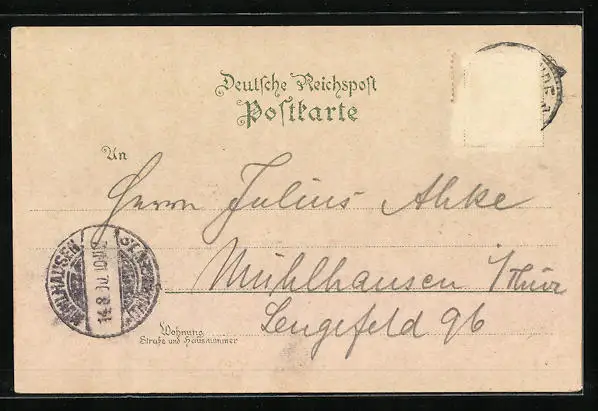 Deutsche Reichspost
Postkarte
An
Herrn Julius Ahke
Mühlhausen i/Thür
Lengefeld 96
Wohnung
Straße und Hausnummer
MÜHLHAUSEN
14.8.00.10-11V.